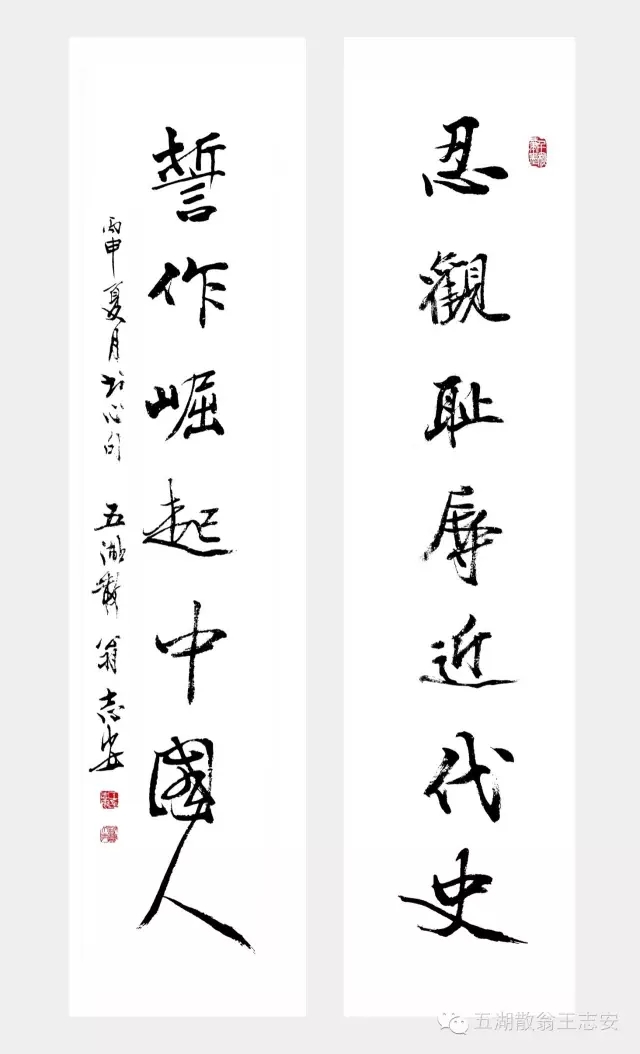 忍觀耻辱近代史
誓作崛起中國人
丙申夏月书心句 五湖散翁志安
五湖散翁王志安